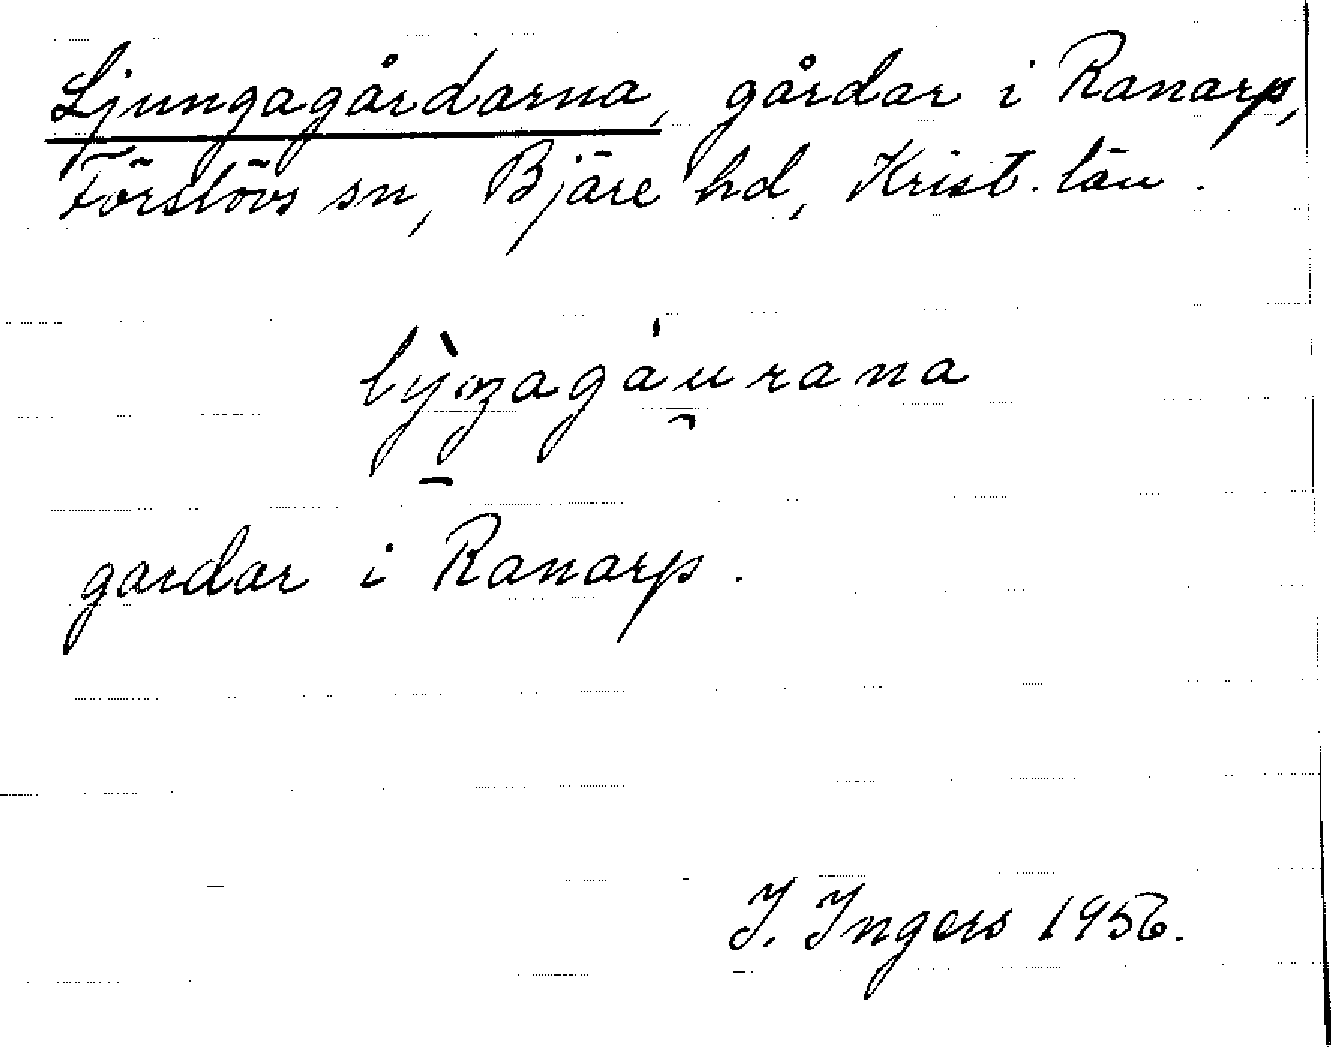 Ljungagårdarna, gårdar i Ranarp,
Förslövs sn, Bjäre hd, Krist. län.
lỳŋagáu̯rana
gardar i Ranarp.
I. Ingers 1956.